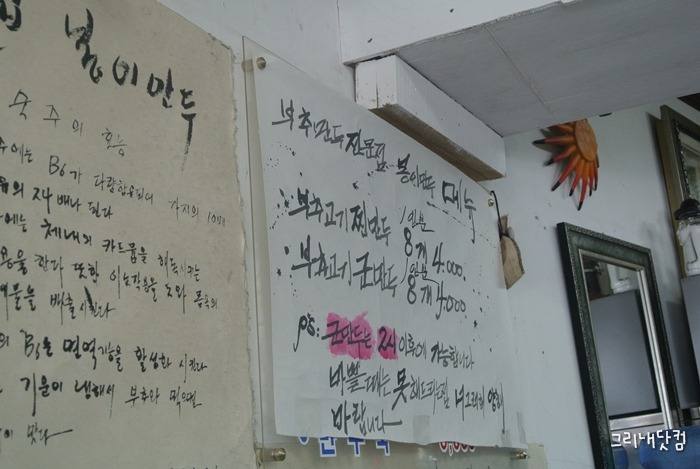 봉이만두
숙주의 효능
주에는 B6가 다량함유되어 가지의 10배
의 자배나 된다
에는 체내의 카드뮴을 희독시키는
용을 한다 또한 이뇨작용을 도와 몸속의
물을 배출시킨다
의 B6을 면역기능을 활성화 시킨다
기운이 냉해서 부추와 먹으면
이 맞다
부추만두전문점 봉이만두 메뉴
부추고기찐만두 1인분 8개 4.000
부추고기군만두 1인분 8개 4.000
PS: 군만두는 2시이후에 가능합니다
바쁠때는 못해드리는걸 너그러히 양해
바랍니다
그리내닷컴